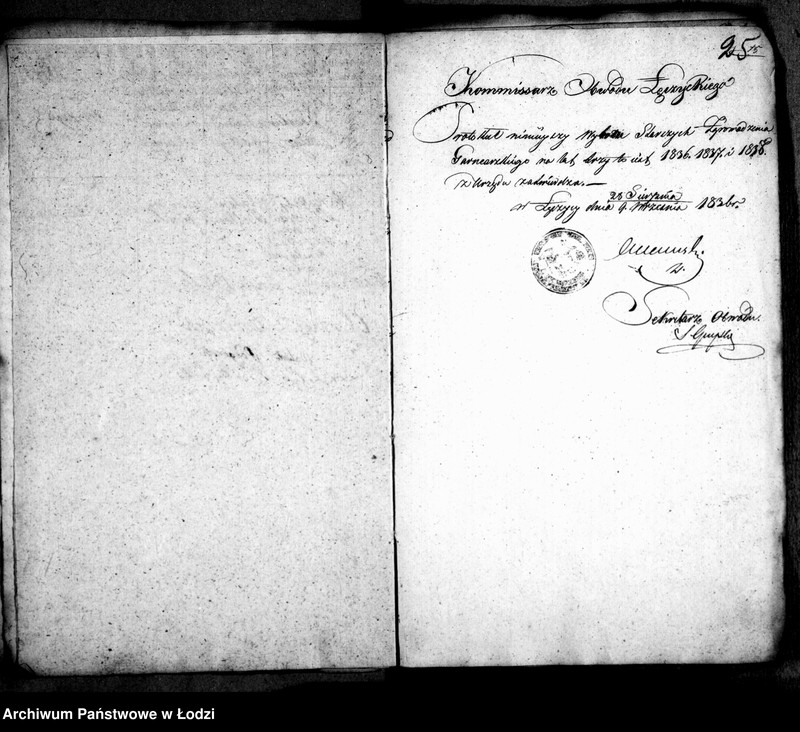 25
Kommissarz Obwodu Łęczyckiego
Protokuł niniejszy wyboru Starszych Zgromadzenia
Garncarskiego na lat trzy to iest 1836. 1837. i 1838.
z Urzędu zatwierdza. —
28 Sierpnia
w Łęczycy dnia 9. Września 1836 r.
Sekretarz Obwodu
Archiwum Państwowe w Łodzi